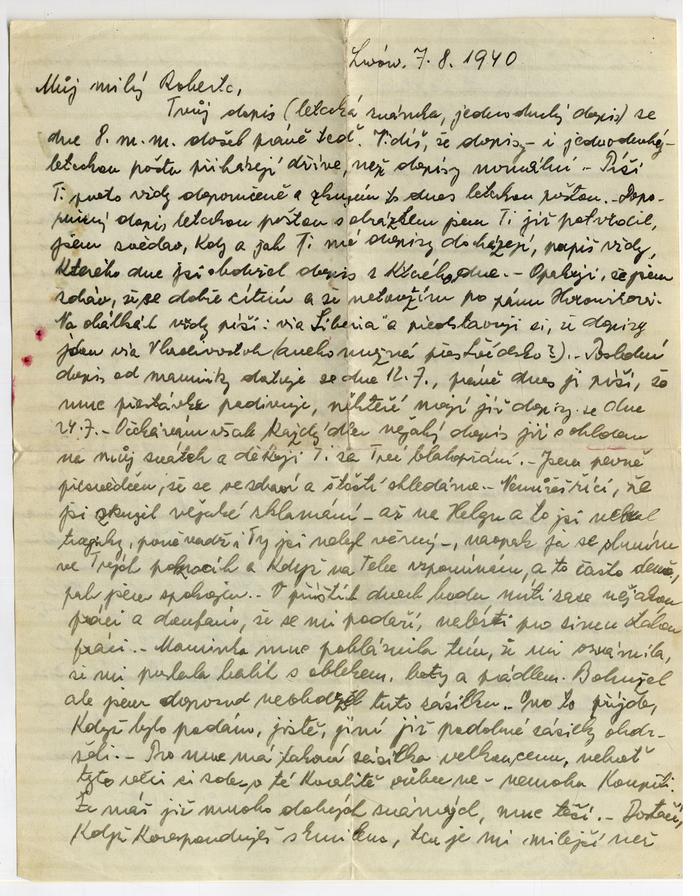 Lwów. 7. 8. 1940
Můj milý Roberte,
Tvůj dopis (letecká známka, jednoduchý dopis) se
dne 8. m. m. došel právě teď. Vidíš, že dopisy – i jednoduché –
leteckou poštou přicházejí dříve, než dopisy normální – Píši
Ti proto vždy doporučeně a zkusím to dnes leteckou poštou. – Dopo-
ručený dopis leteckou poštou s obrázkem jsem Ti již potvrdil,
jsem zvědav, kdy a jak Ti mé dopisy docházejí, napiš vždy,
kterého dne jsi obdržel dopis z kterého dne. – Opakuji, že jsem
zdráv, že se dobře cítím a že netoužím po pánu
Na obálkách vždy píši: via Siberia" a představuji si, že dopisy
jdou via Vladivostok (aneb možná přes Švédsko?). – Poslední
dopis od maminky datuje se dne 12.7., právě dnes jí píši, že
mne přestávka podivuje, někteří mají již dopisy ze dne
24.7. – Očekávám však každý den nějaký dopis již s ohledem
na můj svátek a děkuji Ti za Tvé blahopřání. – Jsem pevně
přesvědčen, že se ve zdraví a štěstí shledáme. – Nemůžeš říci, že
jsi zkusil nějaké zklamání – až na Helgu a to jsi nebral
tragicky, poněvadž i Ty jsi nebyl věrný –, naopak já se sluním
ve Tvých pokrocích a když na Tebe vzpomínám, a to často denně,
pak jsem spokojen. – V příštích dnech budu míti zase nějakou
práci a doufám, že se mi podaří, nalézti pro zimu stálou
práci. – Maminka mne potěšila tím, že mi oznámila,
že mi poslala balík s oblekem, boty a prádlem. Bohužel
ale jsem doposud neobdržel tuto zásilku. Ono to přijde,
když bylo podáno, jistě, jiní již podobné zásilky obdr-
želi. – Pro mne má taková zásilka velkou cenu, neboť
tyto věci si zde o té kvalitě vůbec ne – nemohu koupiti.
Že máš již mnoho dobrých známých, mne těší. – Dostačí,
když koresponduješ s Emilem, ten je mi milejší než